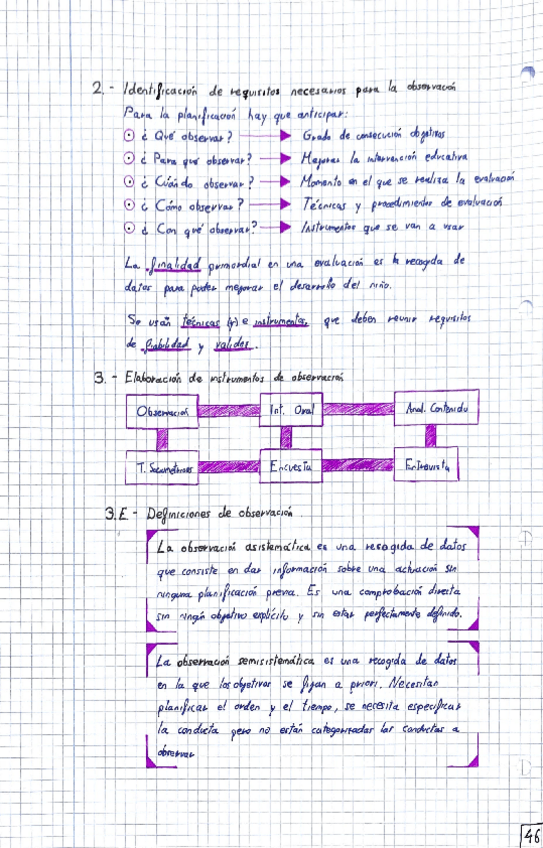 2.- Identificación de requisitos necesarios para la observación
Para la planificación hay que anticipar:
¿Qué observar? Grado de consecución objetivos
¿Para qué observar? Mejorar la intervención educativa
¿Cuándo observar? Momento en el que se realiza la evaluación
¿Cómo observar? Técnicas y procedimientos de evaluación
¿Con qué observar? Instrumentos que se van a usar
La finalidad primordial en una evaluación es la recogida de
datos para poder mejorar el desarrollo del niño.
Se usan técnicas e instrumentos que deben reunir requisitos
de fiabilidad y validez.
3.- Elaboración de instrumentos de observación
Observación Int. Oral Anal. Contenido
T. Sociométricas Encuesta Entrevista
3.E - Definiciones de observación
La observación asistemática es una recogida de datos
que consiste en dar información sobre una actuación sin
ninguna planificación previa. Es una comprobación directa
sin ningún objetivo explícito y sin estar perfectamente definido.
La observación semisistemática es una recogida de datos
en la que los objetivos se fijan a priori. Necesitan
planificar el orden y el tiempo, se necesita especificar
la conducta pero no están categorizadas las conductas a
observar
46